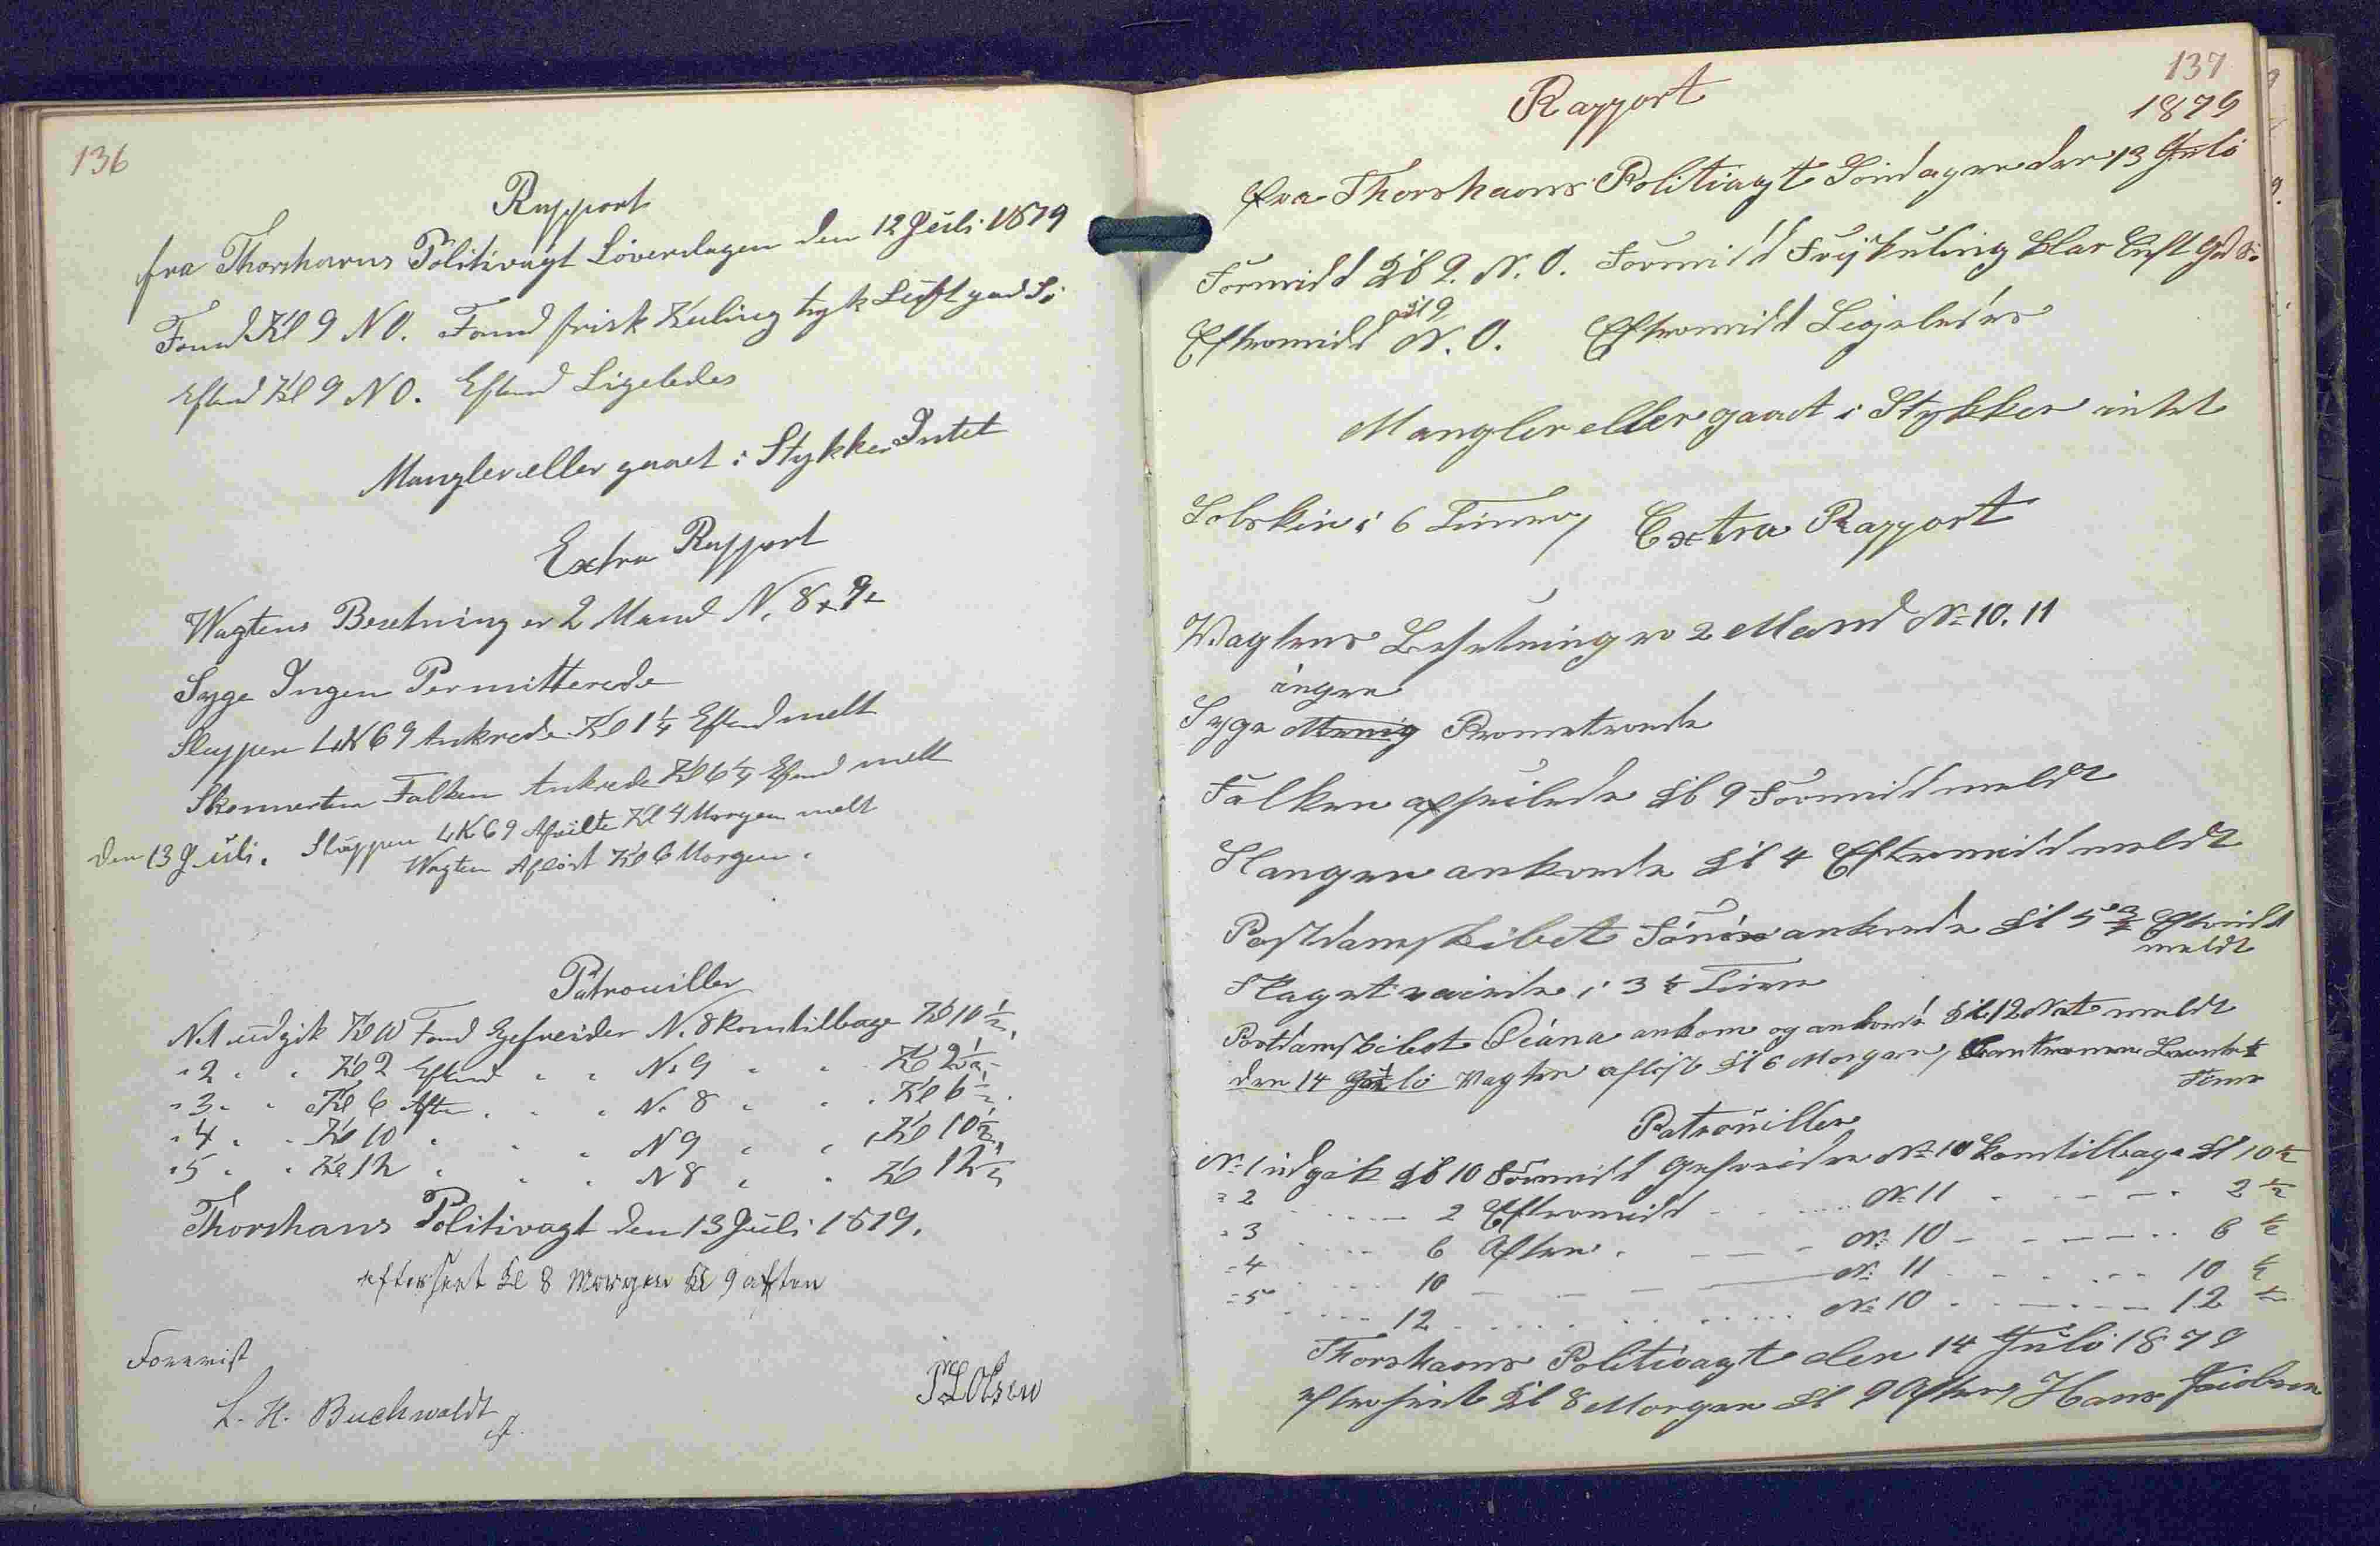 136
Rapport
fra Thorshavns Politivagt Löverdagen den 12 Juli 1879
Formd Kl 9 NO. Formd frisk Kuling tyk Luft god Sö
Eftmd Kl 9 NO. Eftmd Ligeledes
Mangler eller gaaet i Stykker Intet
Extra Rapport
Wagtens Besetning er 2 Mand N. 8 x 9
Syge Ingen Permitterede
Sluppen LK 69 Ankrede Kl 1 1/4 Eftmd melt
Skonnerten Falken Ankrede Kl 6 1/4 Eftmd melt
den 13 Juli. Sluppen LK 69 Afseilte Kl 4 Morgen melt
Wagten Aflöst Kl 6 Morgen.
Patrouiller
N. 1 udgik Kl 10 Formd Gefreider N. 8 kom tilbage Kl 10 1/2
" 2 " " Kl 2 Eftmd " " N. 9 " " Kl 2 1/2
" 3 " " Kl 6 Aften " " N. 8 " " Kl 6 1/2
" 4 " " Kl 10 " " " N 9 " " Kl 10 1/2
" 5 " " Kl 12 " " " N 8 " " Kl 12 1/2
Thorshavns Politivagt den 13 Juli 1879.
efterseet Kl 8 Morgen Kl 9 aften
Foreviist
L. H. Buchwaldt
Olsen
137
Rapport
1879
fra Thorshavns Politivagt Söndagen den 13 Juli
Formidd Kl 9. N. O. Formidd Friskuling klar Luft God Sö
Kl 9
Eftermidd N. O. Eftermidd Ligeledes
Mangler eller gaaet i Stykker intet
Solskin i 6 Timer Extra Rapport
Wagtens Besetning er 2 Mand No 10. 11
ingen
Syge Permeterede
Falken afseilede Kl 9 Formidd meldt
Kl 4 Eftermidd meldt
Postdampskibet Fönix ankrede Kl 5 3/4 Eftmidd
meldt
Flaget vaiede i 3 1/2 Time
Postdampskibet Diana ankom og ankrede Kl 12 Nat meldt
den 14 Juli Vagten aflöst Kl 6 Morgen,
Patrouiller
No 1 udgik Kl 10 Formidd Gefreider No 10 kom tilbage Kl 10 1/2
" 2 2 Eftermidd No 11 2 1/2
" 3 6 Aften No 10 6 1/2
" 4 10 No 11 10 1/2
" 5 12 No 10 12 1/2
Thorshavns Politivagt den 14 Juli 1879
efterseet Kl 8 Morgen Kl 9 Aften, Hans Jacobsen